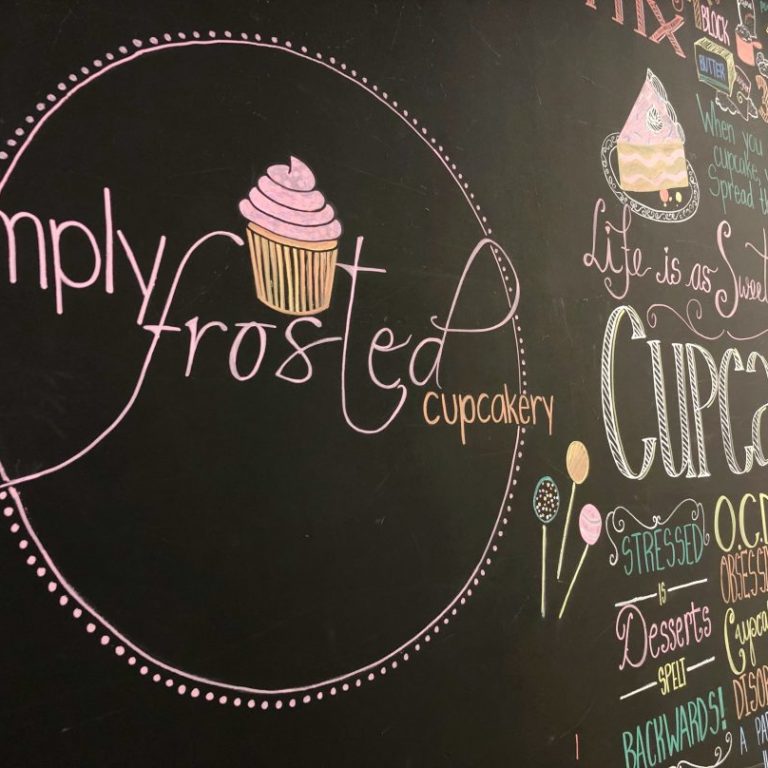 mply
frosted
cupcakery
mix
BLOCK
BUTTER
When you
cupcake,
Spread th
Life is as Sweet
CUPCA
STRESSED
IS
Desserts
SPELT
BACKWARDS!
O.C.D
OBSESSI
Cupca
DISOR
A PA